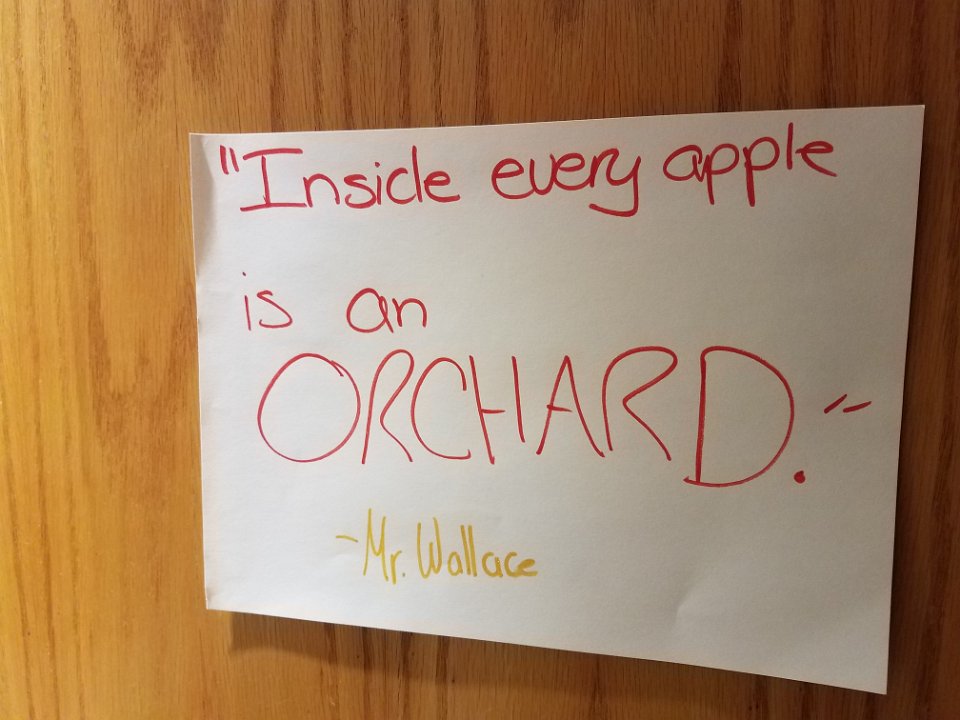 "Inside every apple
is an
ORCHARD."
-Mr. Wallace